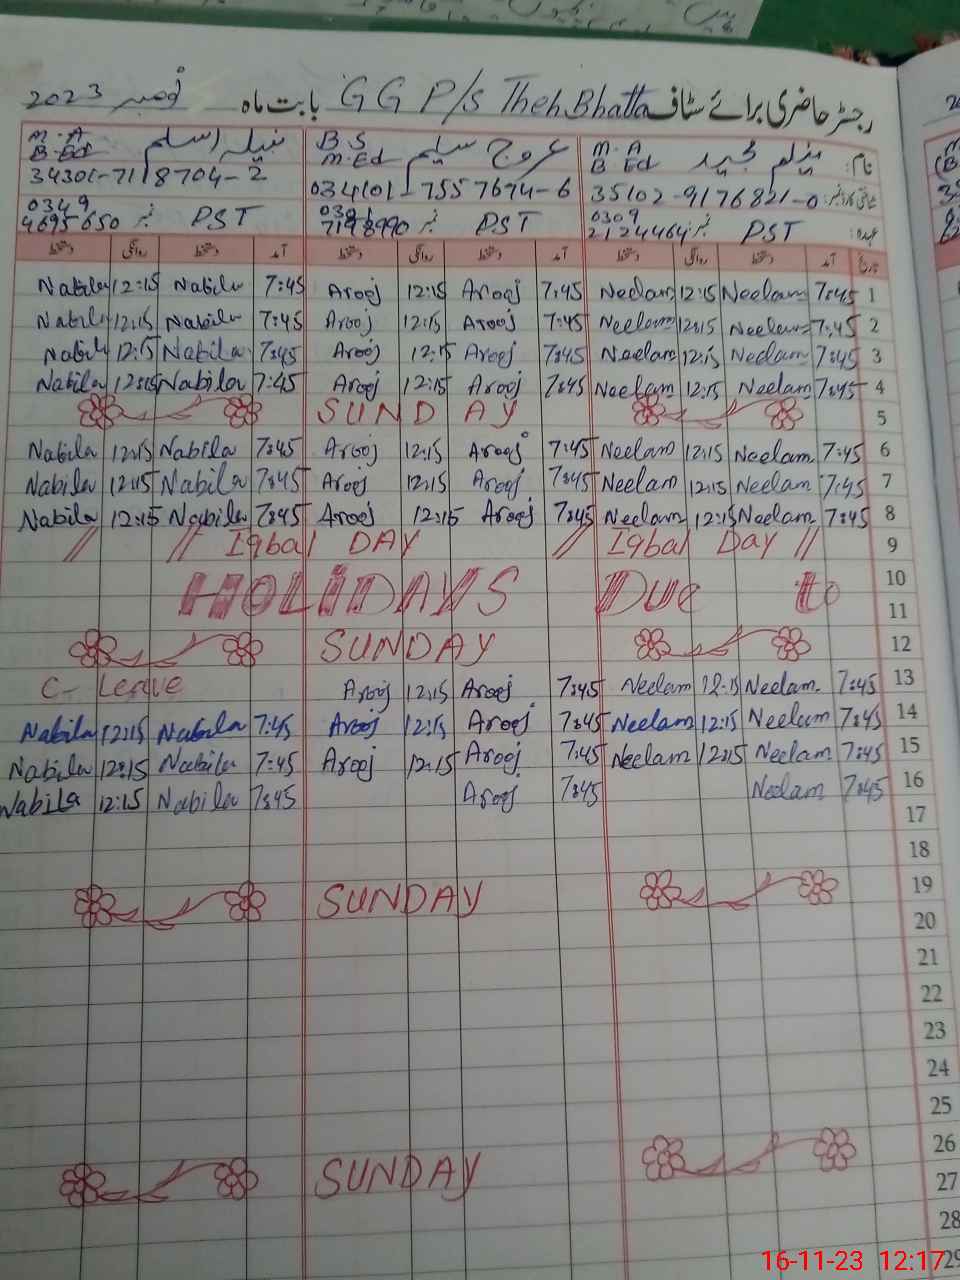 رجسٹر حاضری برائے سٹاف GGP/s Theh Bhatta بابت ماہ نومبر 2023
نام: نیلم مجید M.A B Ed
عروج سلیم B S M.Ed
نبیلہ اسلم M.A B.Ed
35102-9176821-0
034101-7557674-6
34301-7118704-2
عہدہ: PST نمبر 0309 2124464
PST نمبر 7198990
PST نمبر 0349 4695650
تاریخ آمد دستخط روانگی دستخط آمد دستخط روانگی دستخط آمد دستخط روانگی دستخط
Nabila 12:15 Nabila 7:45 Arooj 12:15 Arooj 7:45 Neelam 12:15 Neelam 7:45 1
Nabila 12:15 Nabila 7:45 Arooj 12:15 Arooj 7:45 Neelam 12:15 Neelam 7:45 2
Nabila 12:15 Nabila 7:45 Arooj 12:15 Arooj 7:45 Neelam 12:15 Neelam 7:45 3
Nabila 12:15 Nabila 7:45 Arooj 12:15 Arooj 7:45 Neelam 12:15 Neelam 7:45 4
SUNDAY 5
Nabila 12:15 Nabila 7:45 Arooj 12:15 Arooj 7:45 Neelam 12:15 Neelam 7:45 6
Nabila 12:15 Nabila 7:45 Arooj 12:15 Arooj 7:45 Neelam 12:15 Neelam 7:45 7
Nabila 12:15 Nabila 7:45 Arooj 12:15 Arooj 7:45 Neelam 12:15 Neelam 7:45 8
// // Iqbal DAY // Iqbal Day // 9
HOLIDAYS Due to 10
11
SUNDAY 12
C- Leave Arooj 12:15 Arooj 7:45 Neelam 12:15 Neelam 7:45 13
Nabila 12:15 Nabila 7:45 Arooj 12:15 Arooj 7:45 Neelam 12:15 Neelam 7:45 14
Nabila 12:15 Nabila 7:45 Arooj 12:15 Arooj 7:45 Neelam 12:15 Neelam 7:45 15
Nabila 12:15 Nabila 7:45 Arooj 7:45 Neelam 7:45 16
17
18
SUNDAY 19
20
21
22
23
24
25
SUNDAY 26
27
28
29
16-11-23 12:17